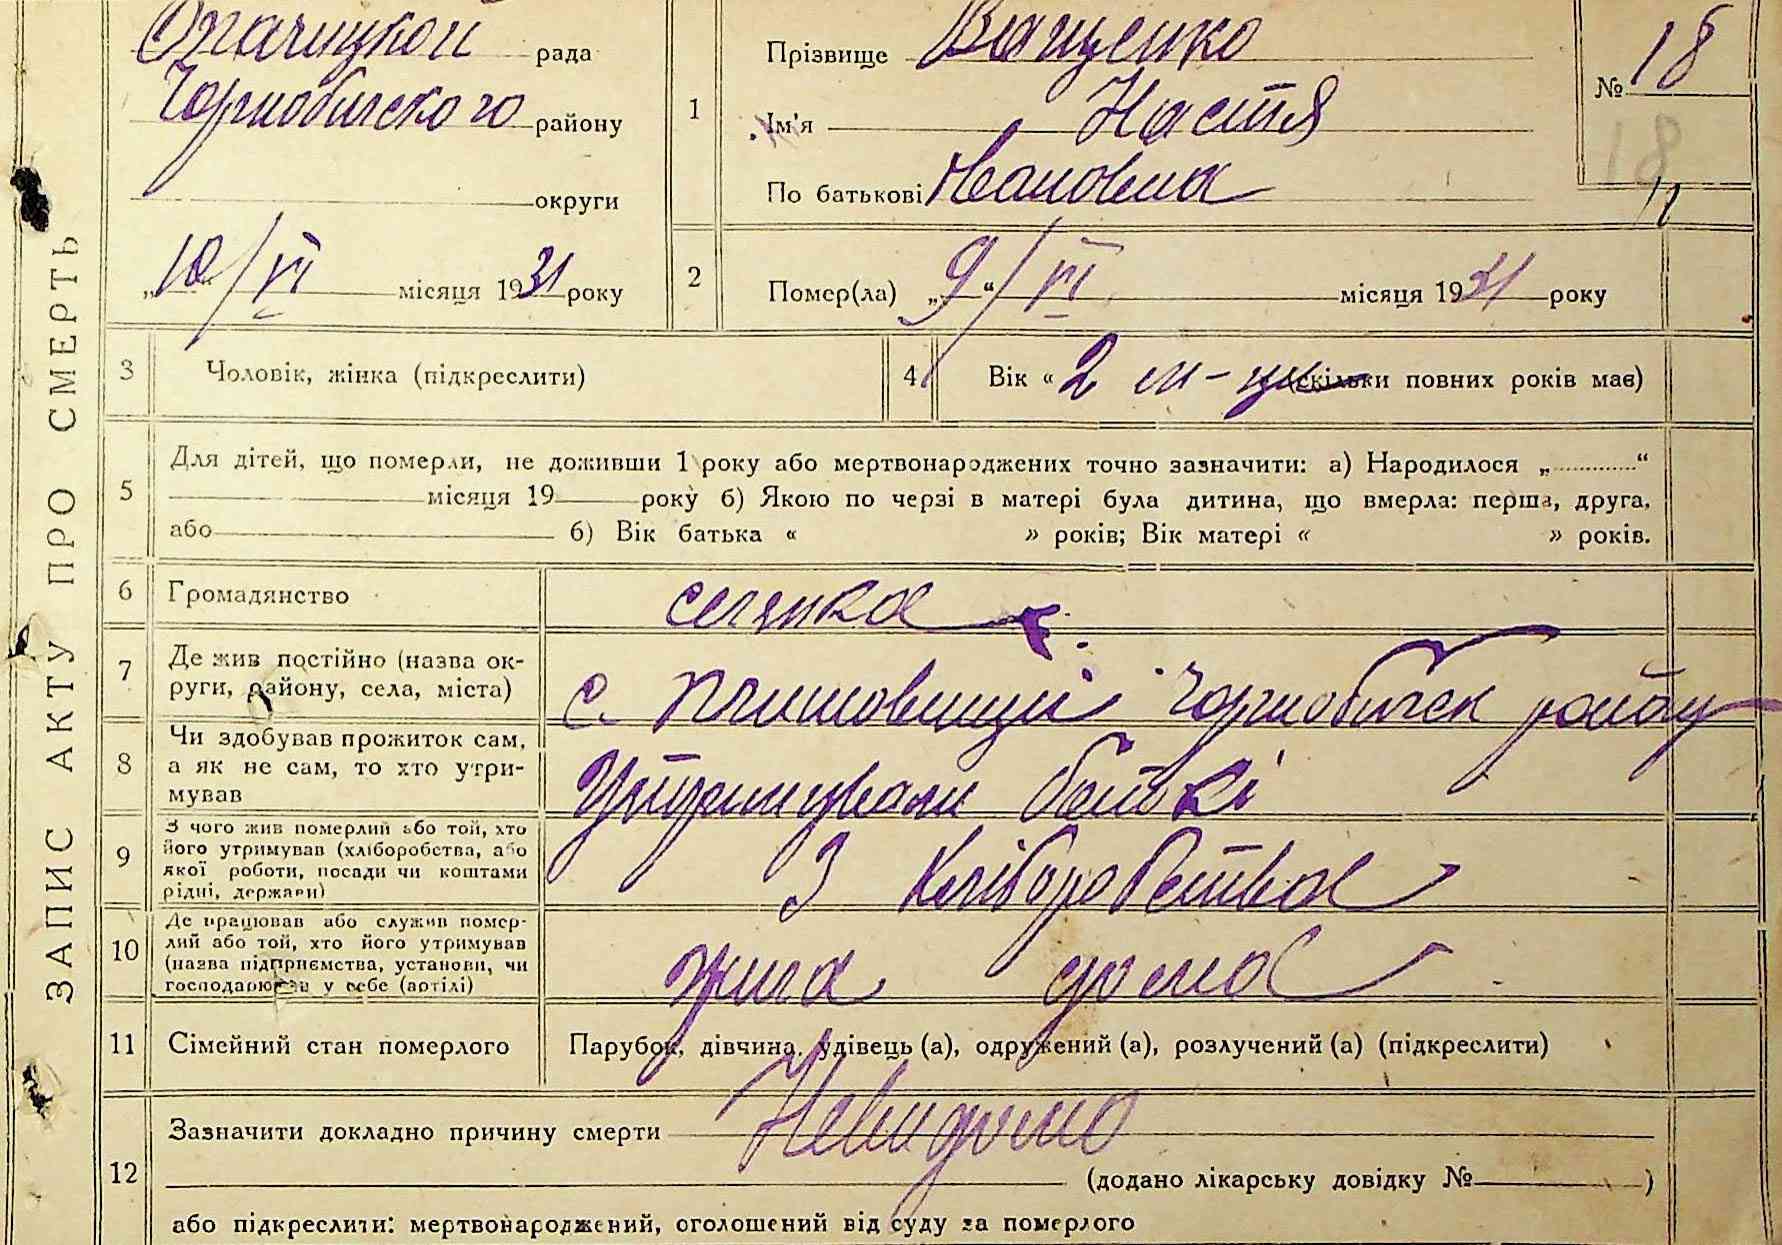 ЗАПИС АКТУ ПРО СМЕРТЬ
Опачицкой рада
Чорнобильского району
округи
„10/VI місяця 1931 року
1
Прізвище Ващенко
Ім'я Настя
По батькові Ивановна
№ 18
18
2
Помер(ла) „9/“ VI місяця 1931 року
3 Чоловік, жінка (підкреслити)
4 Вік « 2 м-ци (скільки повних років має)
5 Для дітей, що померли, не доживши 1 року або мертвонароджених точно зазначити: а) Народилося „ “
місяця 19 року б) Якою по черзі в матері була дитина, що вмерла: перша, друга,
або б) Вік батька « » років; Вік матері « » років.
6 Громадянство селянка
7 Де жив постійно (назва ок-
руги, району, села, міста) с. Чорнобильск району
8 Чи здобував прожиток сам,
а як не сам, то хто утри-
мував Утримували батькі
9 З чого жив померлий або той, хто
його утримував (хліборобства, або
якої роботи, посади чи коштами
рідні, держави) З хліборобства
10 Де працював або служив помер-
лий або той, хто його утримував
(назва підприємства, установи, чи
господарював у себе (артілі) жила дома
11 Сімейний стан померлого Парубок, дівчина, удівець (а), одружений (а), розлучений (а) (підкреслити)
12 Зазначити докладно причину смерти Невидомо
(додано лікарську довідку № )
або підкреслити: мертвонароджений, оголошений від суду за померлого